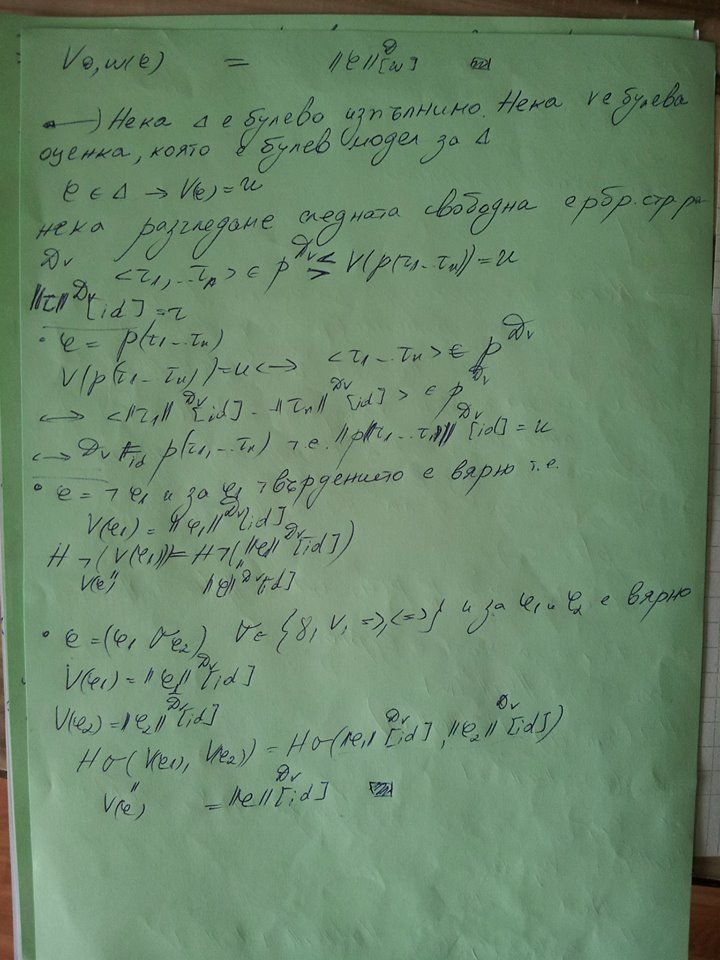 V𝒟,w(φ) = ||φ||^𝒟[w]
←) Нека Δ е булево изпълнимо. Нека v е булева
оценка, която е булев модел за Δ
φ ∈ Δ → V(φ) = и
нека разгледаме следната свободна ербр. стр-ра
𝒟v <τ1,...τn> ∈ p^𝒟v <=> V(p(τ1...τn)) = и
||τ||^𝒟v[id] = τ
• φ = p(τ1...τn)
V(p(τ1...τn)) = и <-> <τ1...τn> ∈ p^𝒟v
<-> <||τ1||^𝒟v[id]...||τn||^𝒟v[id]> ∈ p^𝒟v
<-> 𝒟v ⊨id p(τ1,...τn) т.е. ||p(τ1...τn)||^𝒟v[id] = и
• φ = ¬φ1 и за φ1 твърдението е вярно т.е.
V(φ1) = ||φ1||^𝒟v[id]
H¬(V(φ1)) = H¬(||φ1||^𝒟v[id])
V(φ) ||φ||^𝒟v[id]
• φ = (φ1 σ φ2), σ ∈ {&, V, =>, <=>} и за φ1 и φ2 е вярно
V(φ1) = ||φ1||^𝒟v[id]
V(φ2) = ||φ2||^𝒟v[id]
Hσ(V(φ1), V(φ2)) = Hσ(||φ1||^𝒟v[id], ||φ2||^𝒟v[id])
V(φ) = ||φ||^𝒟v[id]